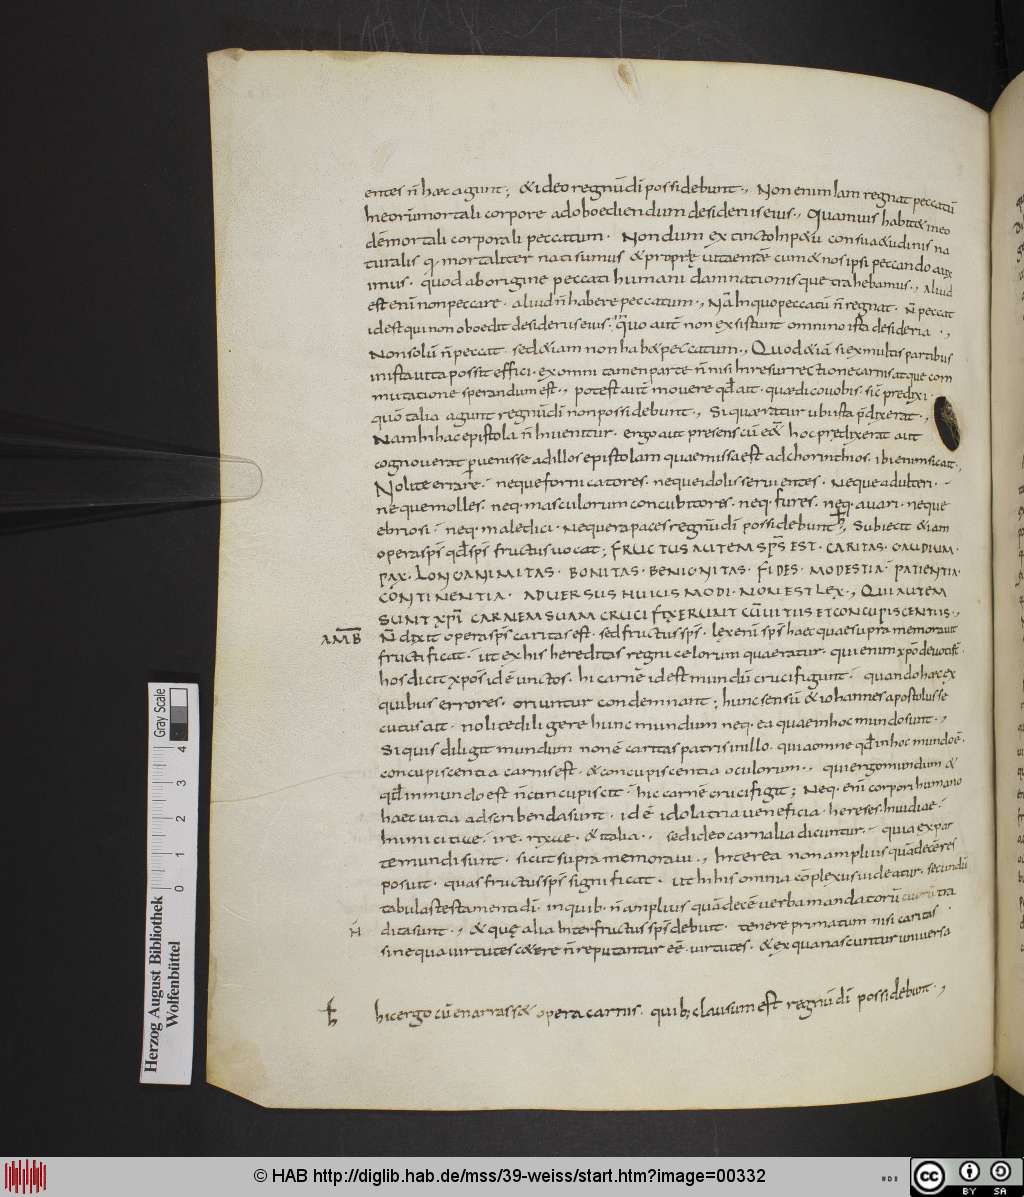 entes n̄ haec agunt; & ideo regnū dī possidebunt., Non enim iam regnat peccatū
in eorū mortali corpore ad oboediendum desideriis eius., Quamuis habit& in eo
dē mortali corporali peccatum. Nondum extincto inp&u consua&udinis na
turalis q. mortaliter nati sumus & proprię uitae
imus. quod ab origine peccati humani damnationis que trahebamus., Aliud
est enī non peccare. aliud n̄ habere peccatum., Nā in quo peccatū n̄ regnat. n̄ peccat
id est qui non oboedit desideriis eius. quo autē non exsistunt omnino ista desideria.,
Non solū n̄ peccat. sed &iam non hab& peccatum., Quod &iā si ex multis partibus
in ista uita possit effici. ex omni tamen parte n̄ nisi in resurrectione carnis atque com
mutatione sperandum est., potest autē mouere qđ ait. quae dico uobis. sic̄ predixi.
quō talia agunt regnū dī non possidebunt., Si quaeratur ubi ista p̄dixerat.,
Nam in hac epistola n̄ inuenitur. ergo aut presens cū eēt hoc predixerat aut
cognouerat peruenisse ad illos epistolam quae missa est ad chorinthios. ibi enim sic ait.,
Nolite errare. neque fornicatores. neque idolis seruientes. Neque adulteri.
neque molles. neq. masculorum concubitores. neq. fures. neq. auari. neque
ebriosi. neq. maledici. neque rapaces regnū dī possidebunt. Subiecit &iam
opera sp̄s qđ sp̄s fructus uocat; FRUCTUS AUTEM SP̄S EST. CARITAS. GAUDIUM.
PAX. LONGANIMITAS. BONITAS. BENIGNITAS. FIDES. MODESTIA. PATIENTIA.
CONTINENTIA. ADUERSUS HUIUS MODI. NON EST LEX., QUI AUTEM
SUNT XPĪ CARNEM SUAM CRUCIFIXERUNT CŪ UITIIS ET CONCUPISCENTIIS.,
AMB N̄ dixit opera sp̄s caritas est. sed fructus sp̄s. lex enī sp̄s haec quae supra memorauit
fructificat. ut ex his hereditas regni celorum quaeratur. qui enim xp̄o deuoti sē.
hos dicit xpōs id ē unctos. hi carnē id est mundū crucifigunt. quando haec ex
quibus errores. oriuntur condemnant; hunc sensū & iohannes apostolus se
cutus ait. nolite diligere hunc mundum neq. ea quae in hoc mundo sunt.,
Si quis diligit mundum non ē caritas patris in illo. quia omne qđ in hoc mundo ē.
concupiscentia carnis est. & concupiscentia oculorum., qui ergo mundum &
qđ in mundo est n̄ concupiscit. hic carnē crucifigit; Neq. enī corpori humano
haec uitia adscribenda sunt. id ē idolitria ueneficia. hereses. inuidiae.
inimicitiae. ire. rixae. & talia., sed ideo carnalia dicuntur. quia ex par
te mundi sunt. sicut supra memoraui., Interea non amplius quā decē res
posuit. quas fructus sp̄s significat. ut in his omnia cōplexus uideatur. secundū
tabulas testamenti dī. in quib. n̄ amplius quā decē uerba mandatorū tra
N̄ dita sunt., & quę alia inter fructus sp̄s debunt. tenere primatum nisi caritas
sine qua uirtutes c&ere n̄ reputantur eē uirtutes. & ex qua nascuntur uniuersa
h hic ergo cū enarrass& opera carnis. quib; clausum est regnū dī possidebunt.,
Herzog August Bibliothek
Wolfenbüttel
0 1 2 3 4 Gray Scale
© HAB http://diglib.hab.de/mss/39-weiss/start.htm?image=00332
cc BY SA